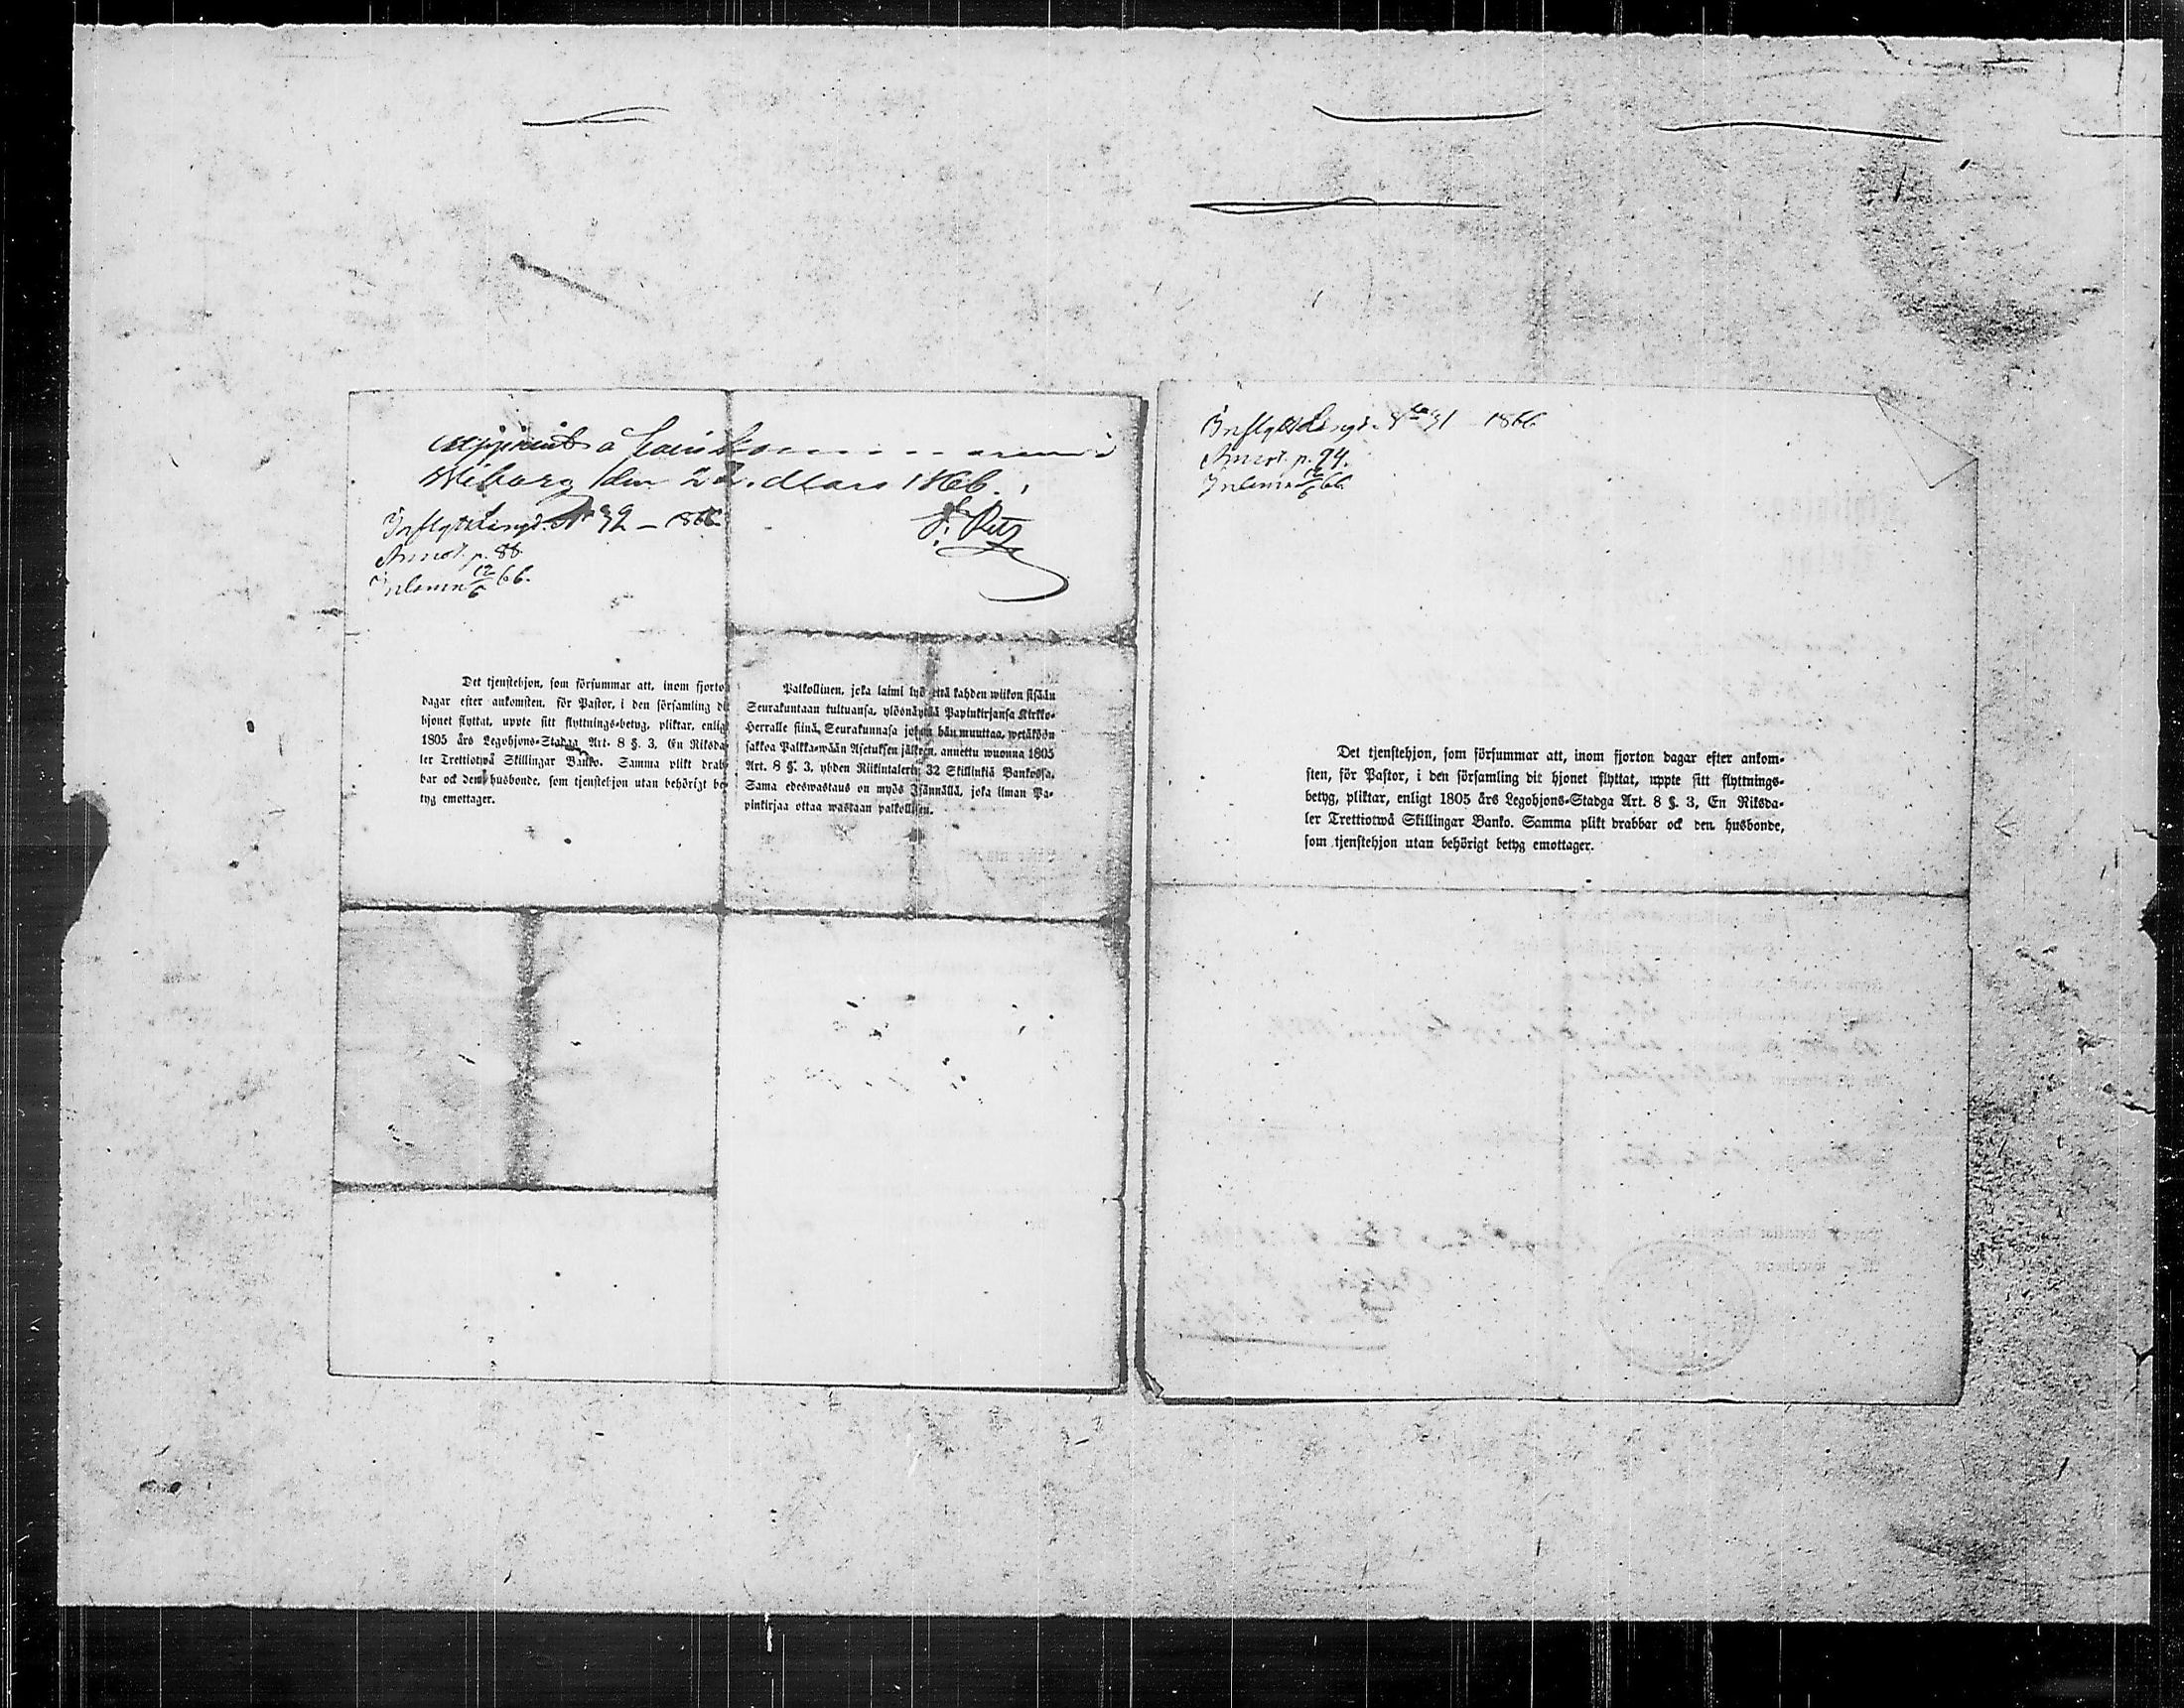 uppvist å
Wiborg den 22. Mars 1866.
Inflyttlängd. N 32 – 1866
Annot. p. 88.
Inlemn 12/6 66.
Det tjenstehjon, som försummar att, inom fjorto
dagar efter ankomsten, för Pastor, i den församling di
hjonet flyttat, uppte sitt flyttnings-betyg, pliktar, enlig
1805 års Legohjons-Stadga Art. 8 §. 3. En Riksda-
ler Trettiotwå Skillingar Banko. Samma plikt drab-
bar ock den husbonde, som tjenstehjon utan behörigt be-
tyg emottager.
Palkollinen, joka laimi lyö että kahden wiikon sisään
Seurakuntaan tultuansa, ylösnäyttää Papinkirjansa Kirkko-
Herralle siinä Seurakunnasa johon hän muuttaa, wetäköön
sakkoa Palkka-wään Asetuksen jälkeen, annettu wuonna 1805
Art. 8 §. 3. yhden Riikintalerin 32 Skillinkiä Bankossa.
Sama edeswastaus on myös Isännällä, joka ilman Pa-
pinkirjaa ottaa wastaan palkollisen.
Inflyttlängd. 31 1866
Annot. p. 94.
Inlemn 12/6 66.
Det tjenstehjon, som försummar att, inom fjorton dagar efter ankom-
sten, för Pastor, i den församling dit hjonet flyttat, uppte sitt flyttnings-
betyg, pliktar, enligt 1805 års Legohjons-Stadga Art. 8 §. 3, En Riksda-
ler Trettiotwå Skillingar Banko. Samma plikt drabbar ock den husbonde,
som tjenstehjon utan behörigt betyg emottager.